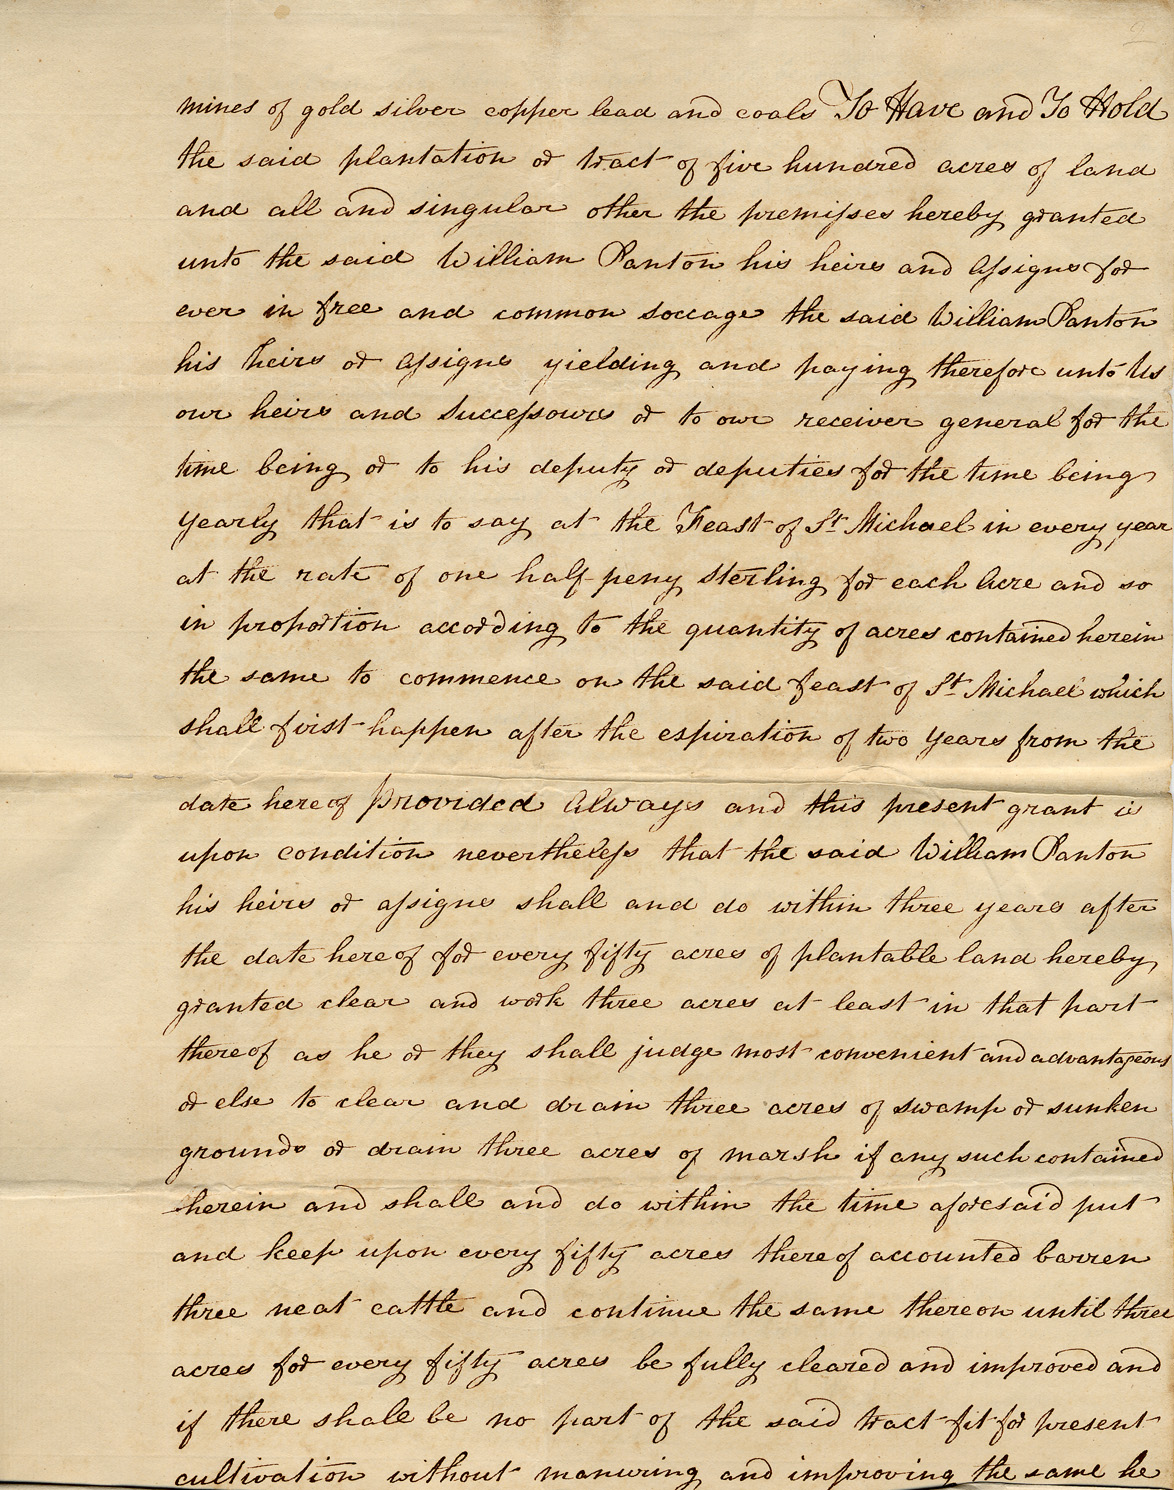 mines of gold silver copper lead and coals To Have and To Hold
the said plantation or tract of five hundred acres of land
and all and singular other the premisses hereby granted
unto the said William Panton his heirs and Assigns for
ever in free and common soccage the said William Panton
his heirs or Assigns yielding and paying therefore unto Us
our heirs and Successours or to our receiver general for the
time being or to his deputy or deputies for the time being
yearly that is to say at the Feast of St Michael in every year
at the rate of one half peny sterling for each Acre and so
in proportion according to the quantity of acres contained herein
the same to commence on the said feast of St Michael which
shall first happen after the expiration of two years from the
date hereof Provided Always and this present grant is
upon condition nevertheless that the said William Panton
his heirs or assigns shall and do within three years after
the date hereof for every fifty acres of plantable land hereby
granted clear and work three acres at least in that part
thereof as he or they shall judge most convenient and advantageous
or else to clear and drain three acres of swamp or sunken
grounds or drain three acres of marsh if any such contained
herein and shall and do within the time aforesaid put
and keep upon every fifty acres thereof accounted barren
three neat cattle and continue the same thereon until three
acres for every fifty acres be fully cleared and improved and
if there shall be no part of the said tract fit for present
cultivation without manuring and improving the same he